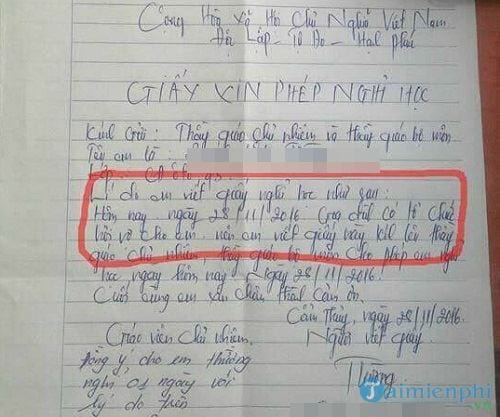 Cộng Hòa Xã Hội Chủ Nghĩa Việt Nam
Độc Lập - Tự Do - Hạnh phúc
GIẤY XIN PHÉP NGHỈ HỌC
Kính Gửi: Thầy giáo Chủ nhiệm và thầy giáo bộ môn
Tên em là:
Lớp
Lí do em viết giấy nghỉ học như sau:
Hôm nay, ngày 28/11/2016. Gia đình có tổ chức
hỏi vợ cho em nên em viết giấy này kính lên thầy
giáo chủ nhiệm thầy giáo bộ môn cho phép em nghỉ
học ngày hôm nay. Ngày 28/11/2016.
Cuối cùng em xin Chân thành Cảm ơn.
Cẩm Thủy, ngày 28/11/2016.
Giáo viên Chủ nhiệm. Người viết giấy
Đồng ý cho em Thường
nghỉ 01 ngày với
lý do trên
Thường
Taimienphi
.vn